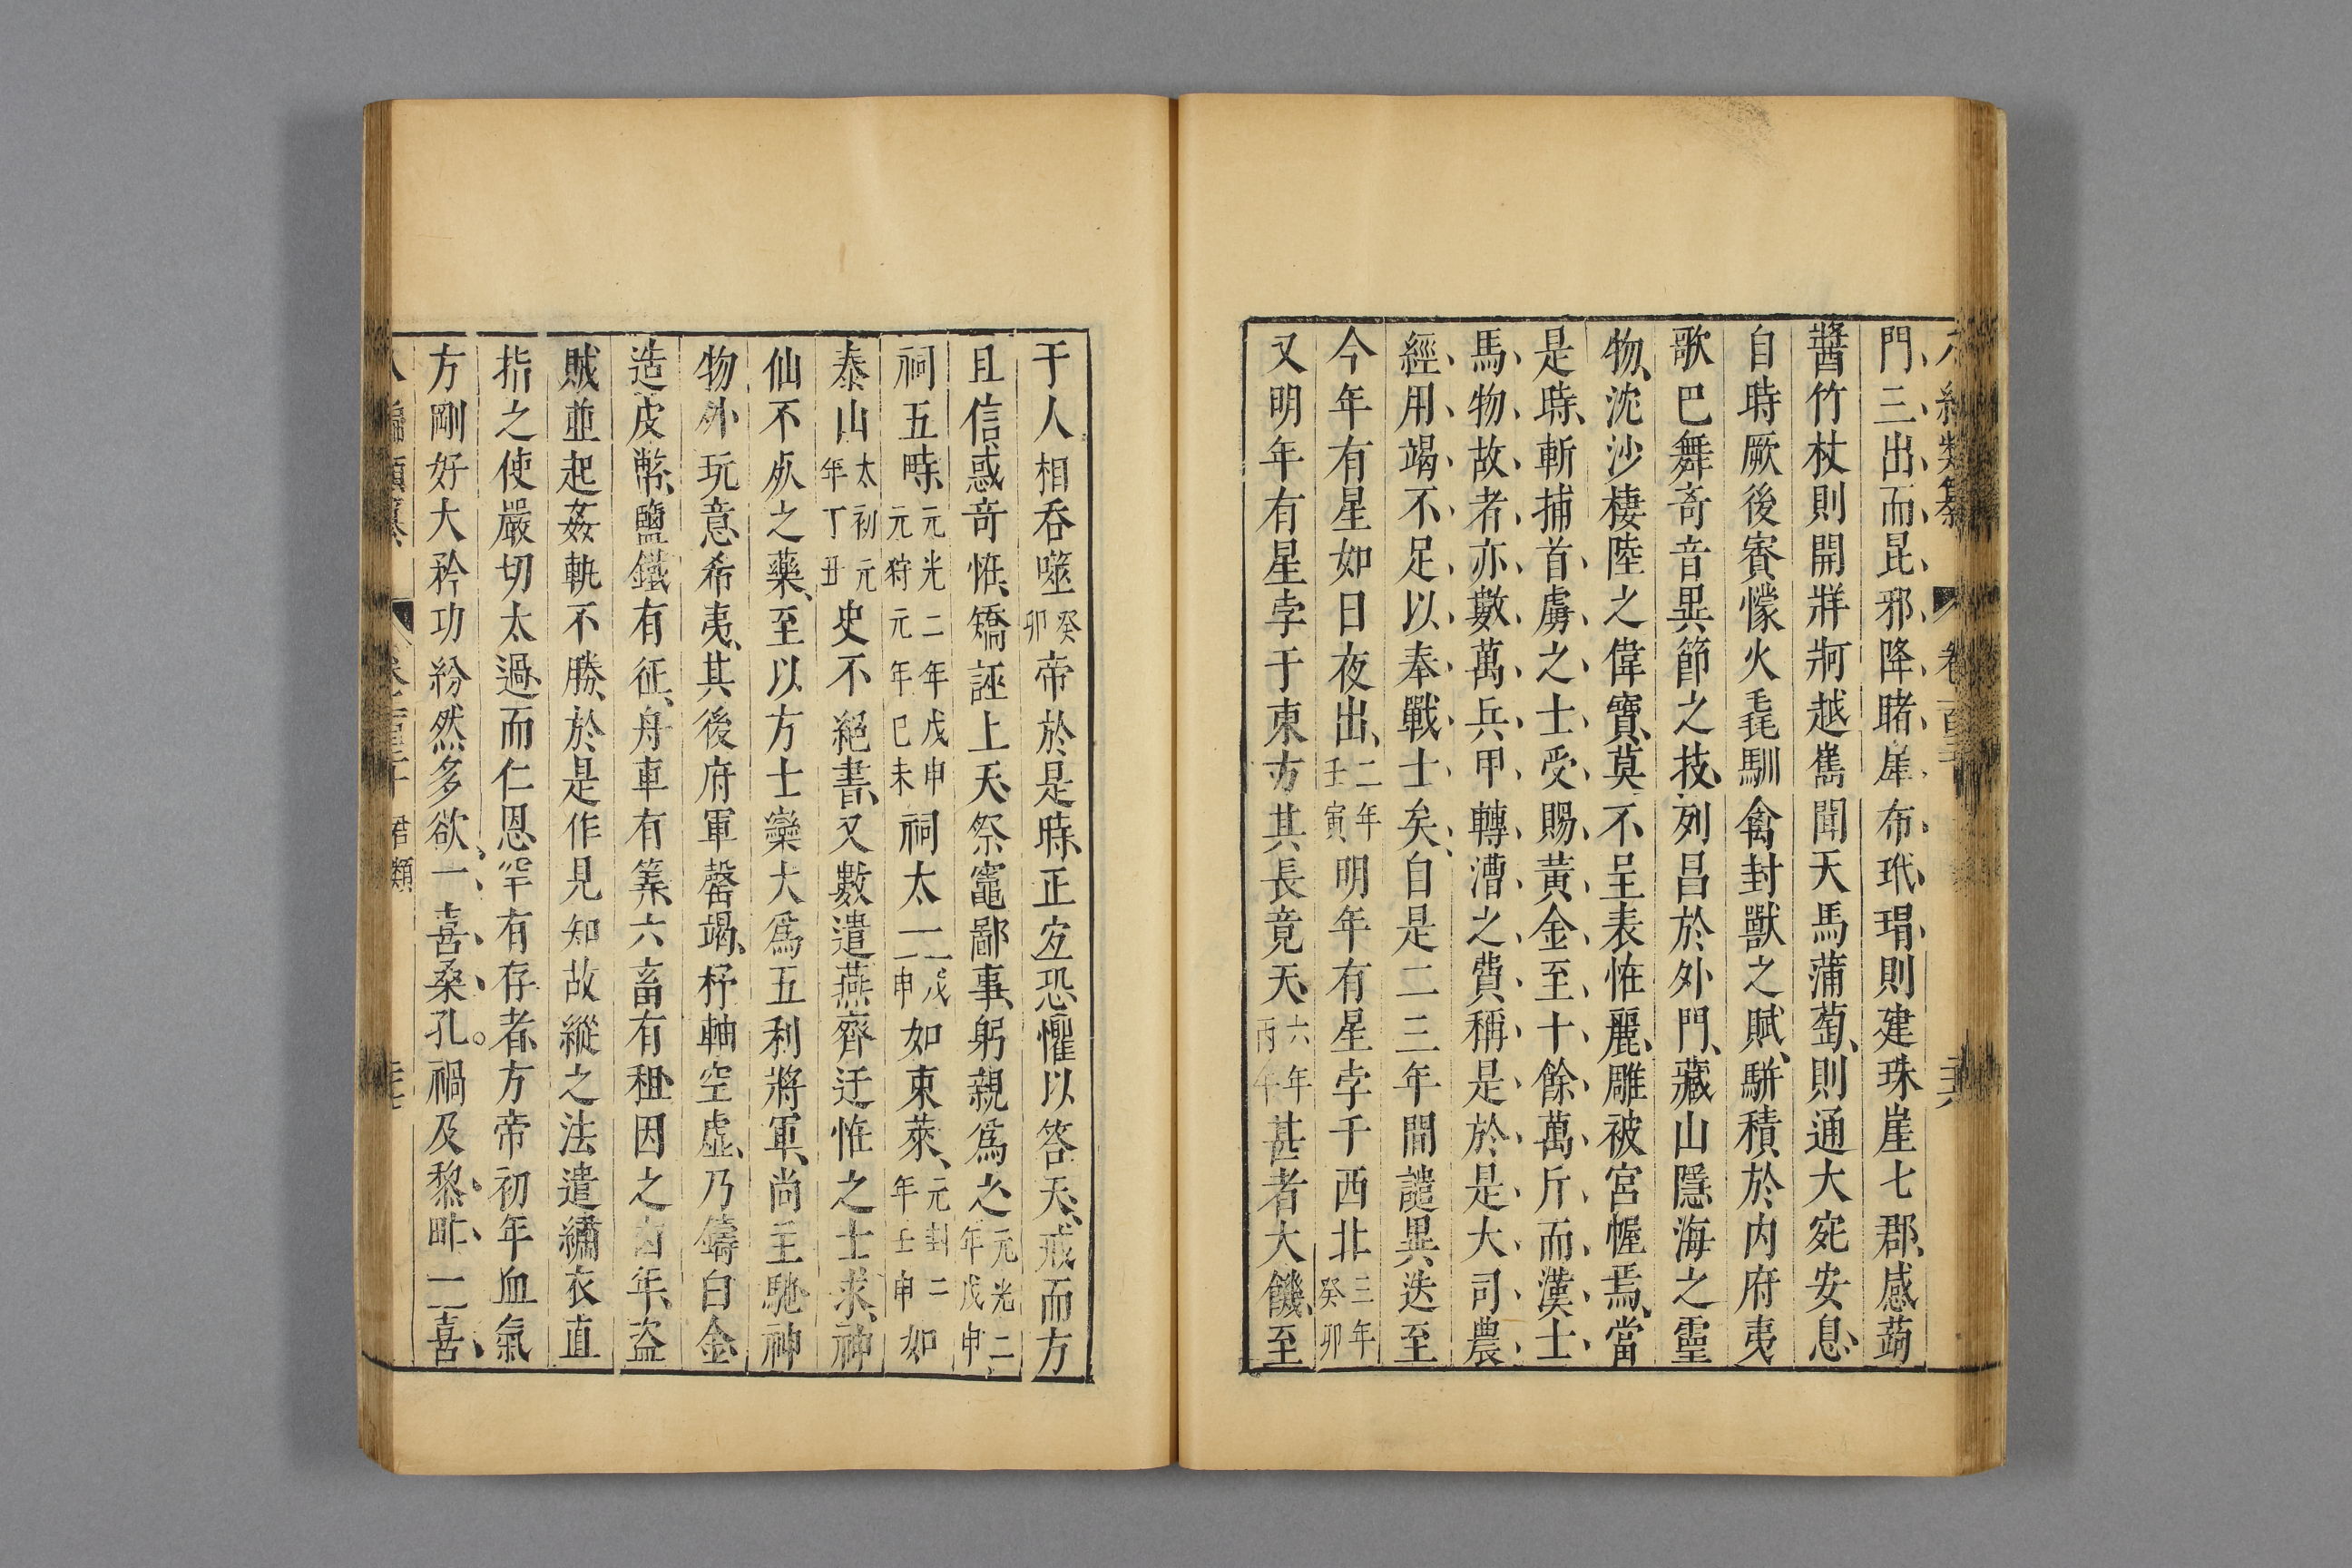 門三出而昆邪降睹犀布玳瑁則建珠崖七郡感蒟
醬竹杖則開牂牁越嶲聞天馬蒲萄則通大宛安息
自時厥後賨幏火毳馴禽封獸之賦駢積於内府夷
歌巴舞奇音異節之技列昌於外門藏山隱海之靈
物沈沙棲陸之偉寶莫不呈表恠麗雕被宮幄焉當
是時斬捕首虜之士受賜黃金至十餘萬斤而漢士
馬物故者亦數萬兵甲轉漕之費稱是於是大司農
經用竭不足以奉戰士矣自是二三年間譴異迭至
今年有星如日夜出二年壬寅明年有星孛于西北三年癸卯
又明年有星孛于東方其長竟天六年丙午甚者大饑至
于人相吞噬癸卯帝於是時正宜恐懼以答天戒而方
且信惑奇恠矯誣上天祭竈鄙事躬親爲之元光二年戊申
祠五畤元光二年戊申元狩元年己未祠太一一戊一申如東萊元封二年壬申如
泰山太初元年丁丑史不絕書又數遣燕齊迂恠之士求神
仙不死之藥至以方士欒大爲五利將軍尚主馳神
物外玩意希夷其後府軍罄竭杼軸空虛乃鑄白金
造皮幣鹽鐵有征舟車有筭六畜有租因之凶年盗
賊並起姦軌不勝於是作見知故縱之法遣繡衣直
指之使嚴切太過而仁恩罕有存者方帝初年血氣
方剛好大矜功紛然多欲一喜桑孔禍及黎甿一喜